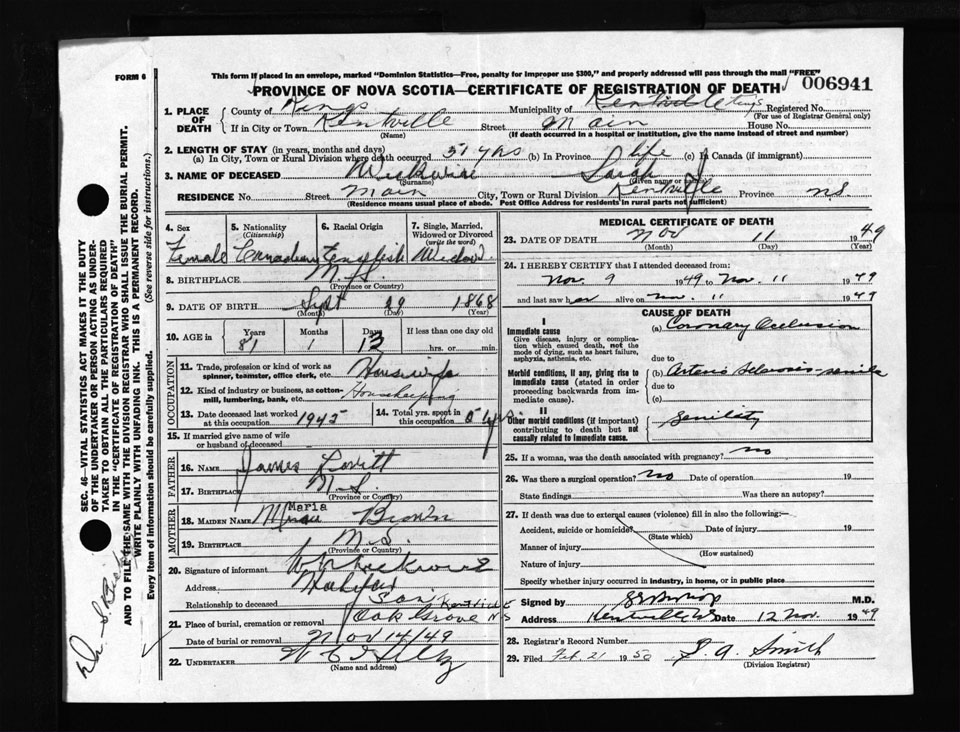 FORM 6
This form if placed in an envelope, marked "Dominion Statistics—Free, penalty for improper use $300," and properly addressed will pass through the mail "FREE"
PROVINCE OF NOVA SCOTIA—CERTIFICATE OF REGISTRATION OF DEATH 006941
1. PLACE OF DEATH County of Kings Municipality of Kentville Kings Registered No. (For use of Registrar General only)
If in City or Town Kentville (Name) Street Main House No.
(If death occurred in a hospital or institution, give the name instead of street and number)
2. LENGTH OF STAY (in years, months and days)
(a) In City, Town or Rural Division where death occurred 51 yrs (b) In Province life (c) In Canada (if immigrant)
3. NAME OF DECEASED Wickwire (Surname) Sarah J (Given name or names)
RESIDENCE No. Street Main City, Town or Rural Division Kentville Province NS
(Residence means usual place of abode. Post Office Address for residents in rural parts not sufficient)
4. Sex Female
5. Nationality (Citizenship) Canadian
6. Racial Origin English
7. Single, Married, Widowed or Divorced (write the word) Widow
8. BIRTHPLACE N.S. (Province or Country)
9. DATE OF BIRTH Sept (Month) 29 (Day) 1868 (Year)
10. AGE in Years 81 Months 1 Days 13 If less than one day old hrs. or min.
OCCUPATION
11. Trade, profession or kind of work as spinner, teamster, office clerk, etc. Housewife
12. Kind of industry or business, as cotton-mill, lumbering, bank, etc. Housekeeping
13. Date deceased last worked at this occupation 1945
14. Total yrs. spent in this occupation yrs.
15. If married give name of wife or husband of deceased
FATHER
16. NAME James Lovitt
17. BIRTHPLACE N.S. (Province or Country)
MOTHER
18. MAIDEN NAME Maria Brown
19. BIRTHPLACE N.S. (Province or Country)
20. Signature of informant
Address Halifax
Relationship to deceased Son
21. Place of burial, cremation or removal Oak Grove Kentville NS
Date of burial or removal Nov 14/49
22. UNDERTAKER (Name and address)
MEDICAL CERTIFICATE OF DEATH
23. DATE OF DEATH Nov (Month) 11 (Day) 1949 (Year)
24. I HEREBY CERTIFY that I attended deceased from:
Nov. 9 1949 to Nov. 11 1949
and last saw her alive on Nov. 11 1949
CAUSE OF DEATH
I
Immediate cause
Give disease, injury or complication which caused death, not the mode of dying, such as heart failure, asphyxia, asthenia, etc.
(a) Coronary Occlusion
due to
Morbid conditions, if any, giving rise to immediate cause (stated in order proceeding backwards from immediate cause).
(b) Arterio Sclerosis - senile
due to
(c)
II
Other morbid conditions (if important) contributing to death but not causally related to immediate cause.
Senility
25. If a woman, was the death associated with pregnancy? no
26. Was there a surgical operation? no Date of operation 19
State findings Was there an autopsy?
27. If death was due to external causes (violence) fill in also the following:—
Accident, suicide or homicide? (State which) Date of injury 19
Manner of injury (How sustained)
Nature of injury
Specify whether injury occurred in industry, in home, or in public place
Signed by M.D.
Address Kentville NS Date 12 Nov. 1949
28. Registrar's Record Number
29. Filed Feb. 21 1950 S. A. Smith (Division Registrar)
SEC. 46—VITAL STATISTICS ACT MAKES IT THE DUTY
OF THE UNDERTAKER OR PERSON ACTING AS UNDER-
TAKER TO OBTAIN ALL THE PARTICULARS REQUIRED
IN THE "CERTIFICATE OF REGISTRATION OF DEATH"
AND TO FILE THE SAME WITH THE DIVISION REGISTRAR WHO SHALL ISSUE THE BURIAL PERMIT.
WRITE PLAINLY WITH UNFADING INK. THIS IS A PERMANENT RECORD.
Every item of information should be carefully supplied. (See reverse side for instructions.)